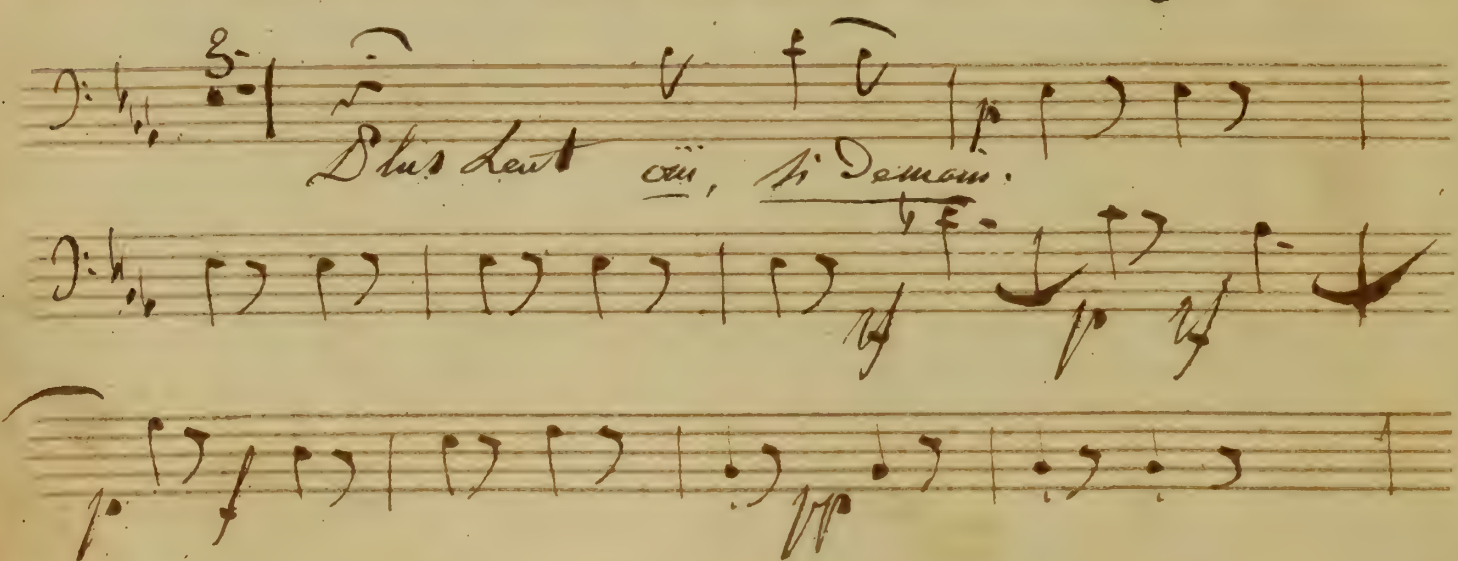 3.
Plus Lent oui, si Demain.
p
rf p rf
p f pp